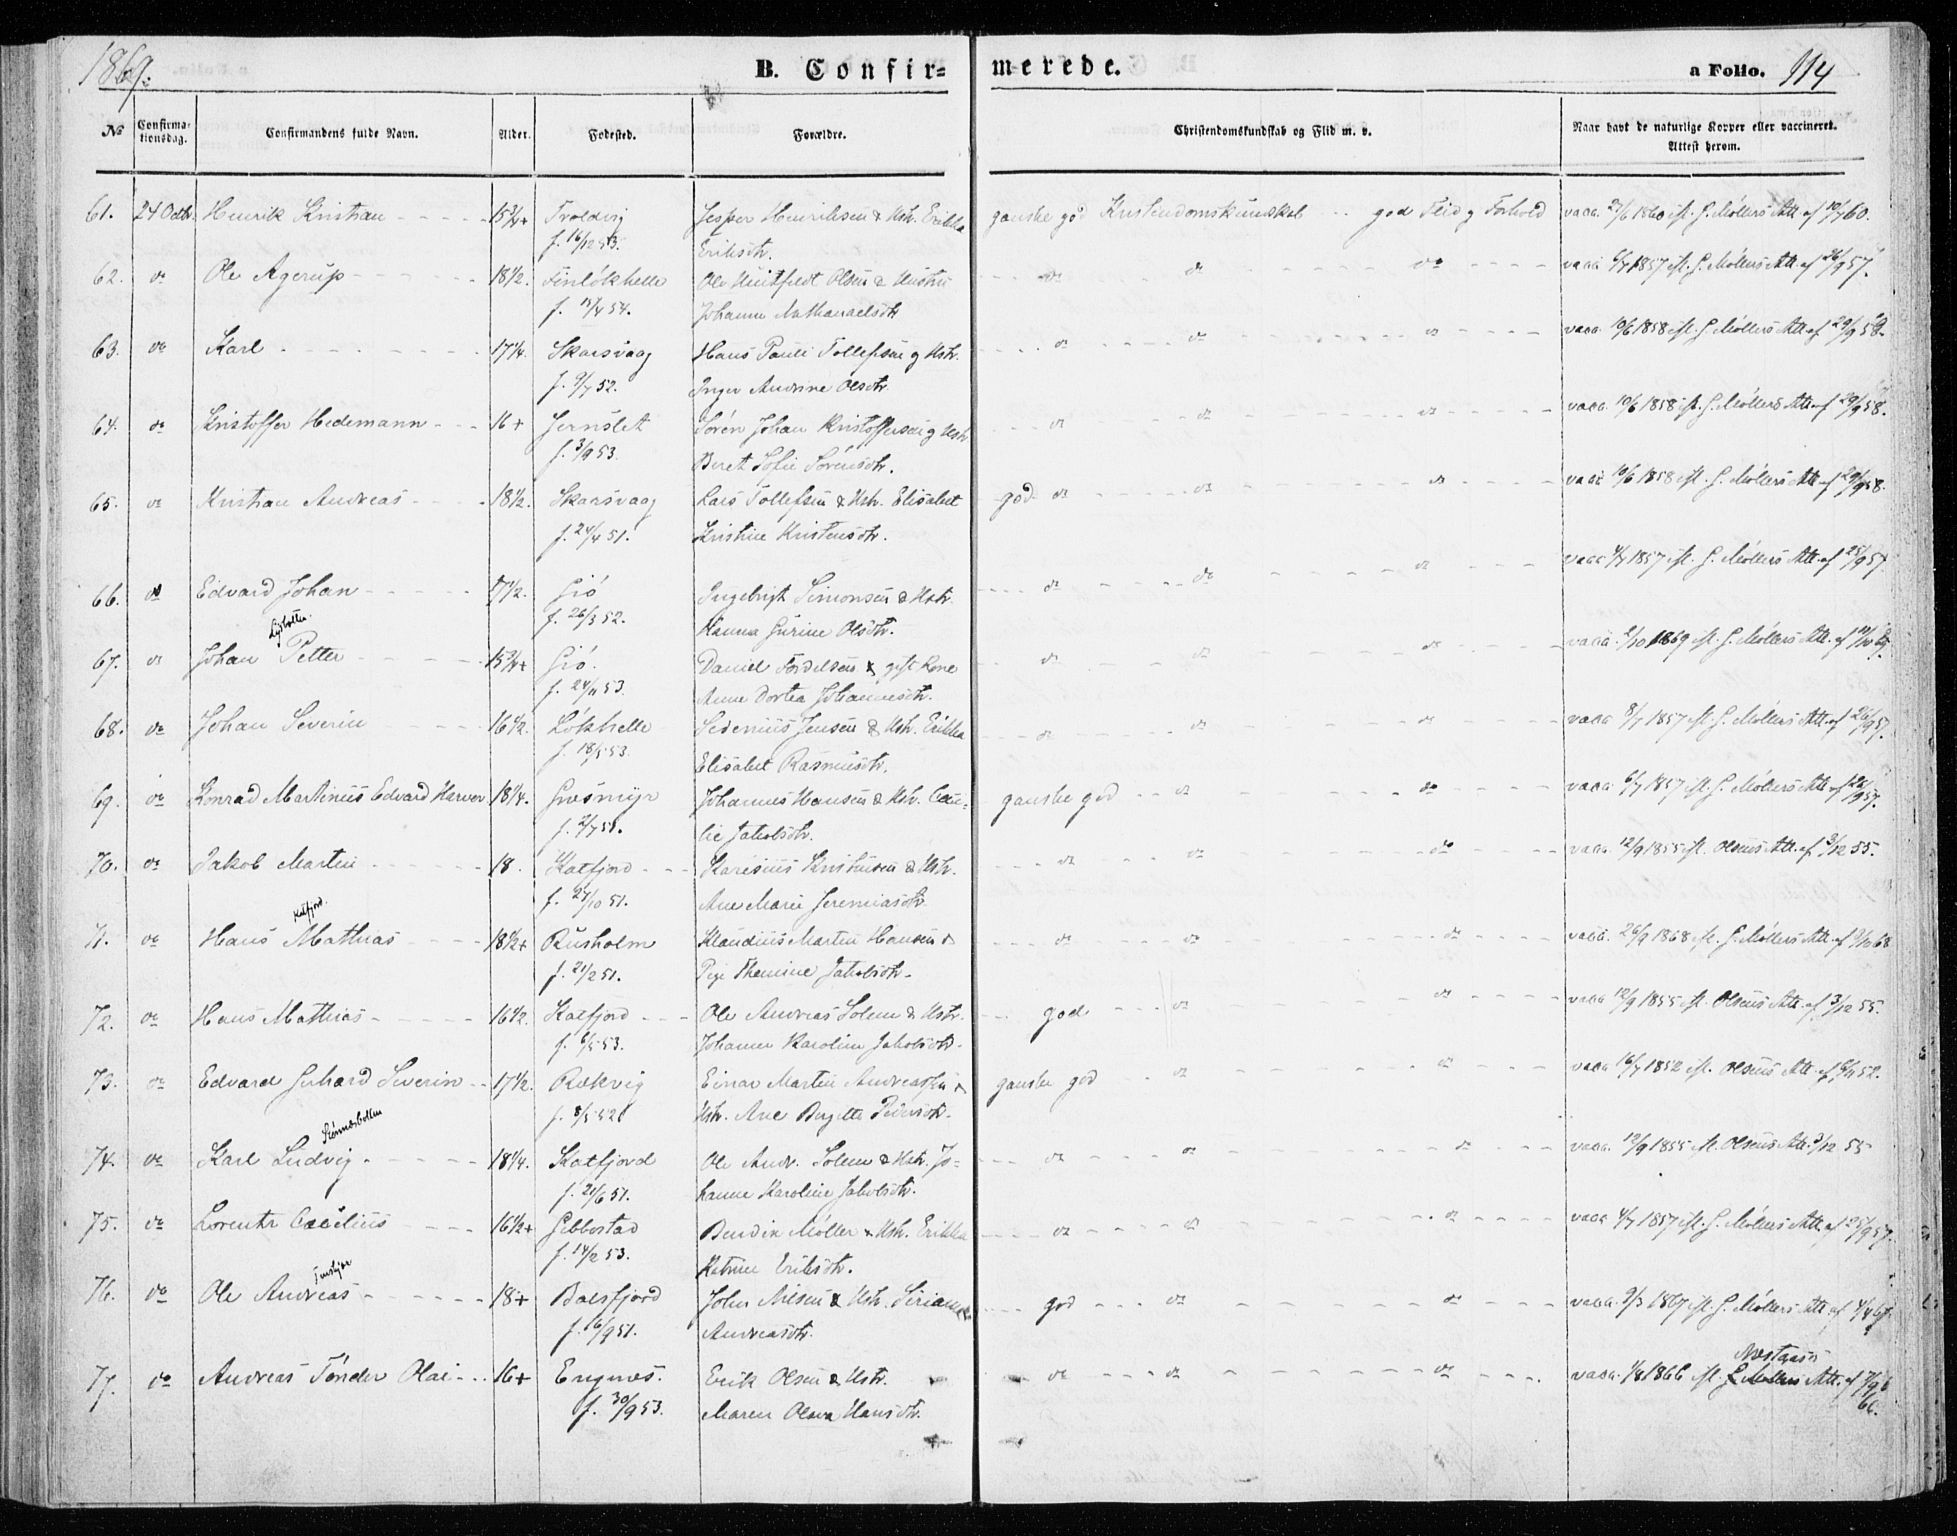 1869.
B. Confir= merede.
a Folio. 114
No
Confirma-
tionsdag.
Confirmandens fulde Navn.
Alder.
Fødested.
Forældre.
Christendomskundskab og Flid m. v.
Naar havt de naturlige Kopper eller vaccineret.
Attest herom.
61. 24 Octbr. Henrik Kristian 15¾+ Troldvig Jesper Henriksen & Hstr. Erikka ganske god Kristendomskundskab god Flid og Forhold vacc. 1860 ifl. G. Møllers Att. af 60.
f. 16/12 53. Eriksdtr.
62. do Ole Agerup 18½. Finlökhelle Ole Olsen & Hustru do do do vacc. 1857 ifl. G. Møllers Att. af 26/9 57.
54. Johanne Nathanaelsdtr
63. do Karl 17¼. Skarsvaag Hans Pauli Tollefsen og Hstr. do do do vacc. 10/6 1858 ifl. G. Møllers Att. af 29/9 58.
f. 9/7 52. Inger Andrine Olsdtr
64. do Kristoffer Hedemann 16+ Jernslet Sørén Johan Kristoffersen og Hstr do do do vacc. 10/6 1858 ifl. G. Møllers Att. af 29/9 58.
f. 3/9 53. Beret Sofie Sörensdtr.
65. do Kristian Andreas 18½. Skarsvaag Lars Tollefsen & Hstr. Elisabet god do do do vacc. 10/6 1858 ifl. G. Møllers Att. af 29/9 58.
f. 24/4 51. Kristine Kristensdtr.
66. do Edvard Johan 17½. Giö Ingebrigt Simonsen & Hstr. do do do vacc. 1857 ifl. G. Møllers Att. af 25/9 57.
f. 26/3 52. Hanna Gurine Olsdtr.
Lysbotten.
67. do Johan Petter 15¾+ Giö. Daniel Fordelsen & gift Kone do do do vacc. 2/10 1869 ifl. G. Møllers Att. af 69.
f. 24/11 53. Anne Dortea Johannesdtr.
68. do Johan Severin 16½. Lökhelle Sedenius Jensen & Hstr. Erikka do do do vacc. 8/7 1857 ifl. G. Møllers Att. af 26/9 57.
f. 18/5 53. Elisabet Rasmusdtr.
69. do Konrad Martinus Edvard Harver 18¼. Græsmyr Johannes Hansen & Hstr. ganske god do do vacc. 6/7 1857 ifl. G. Møllers Att. af 25/9 57.
f. 2/7 51. Jakobsdtr.
70. do Jakob Martin 18. Kalfjord Karesius Kristensen & Hstr. do do do vacc. 12/9 1855 ifl. Olsens Att. af 3/12 55.
f. 27/10 51. Ane Marie Jeremiasdtr
Kalfjord.
71. do Hans Mathias 18½+ Rusholm Klaudius Martin Hansen & do do do vacc. 26/9 1868 ifl. G. Møllers Att. af 68
f. 21/2 51. Pige Themine Jakobsdtr.
72. do Hans Mathias 16½. Kalfjord Ole Andreas Solem & Hstr. god do do vacc. 12/9 1855 ifl. Olsens Att. af 3/12 55.
f. 6/5 53. Johanne Karoline Jakobsdtr.
73. do Edvard Gerhard Severin 17½. Rækvig Einar Martin Andreassen & ganske god do do vacc. 16/7 1852 ifl. Olsens Att. af 52.
f. 8/5 52 Hstr. Ane Birgitte Pedersdtr.
74. do Karl Ludvig 18¼. Kalfjord Ole Andr. Solem & Hstr. Jo- do do do vacc. 12/9 1855 ifl. Olsens Att. 3/12 55
f. 21/6 51. hanne Karoline Jakobsdtr.
75. do Lorentz Cecilius 16½+ Gibbostad Bendix Møller & Hstr. Erikka do do do vacc. 4/7 1857 ifl. G. Møllers Att. af 25/9 57.
f. 14/2 53. Katrine Eriksdtr.
76. do Ole Andreas 18+ Balsfjord John Nilsen & Hstr. god do do vacc. 9/3 1867 ifl. G. Møllers Att. af 4/4 67.
f. 16/9 51. Andreasdtr.
77. do Andreas Tönder Olai 16+ Engnes. Erik Olsen & Hstr. do do do vacc. 1/8 1866 ifl. Att. af 66.
f. 30/9 53. Maren Olava Hansdtr.